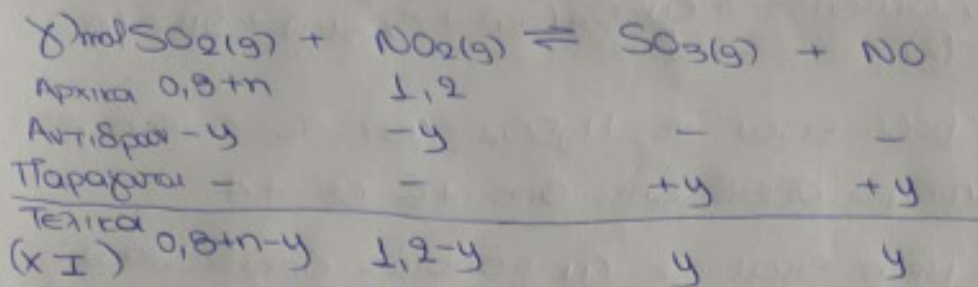 γ) mol SO2(g) + NO2(g) ⇌ SO3(g) + NO
Αρχικα 0,8+n 1,2
Αντιδρουν -y -y - -
Παραγονται - - +y +y
Τελικα
(ΧΙ) 0,8+n-y 1,2-y y y